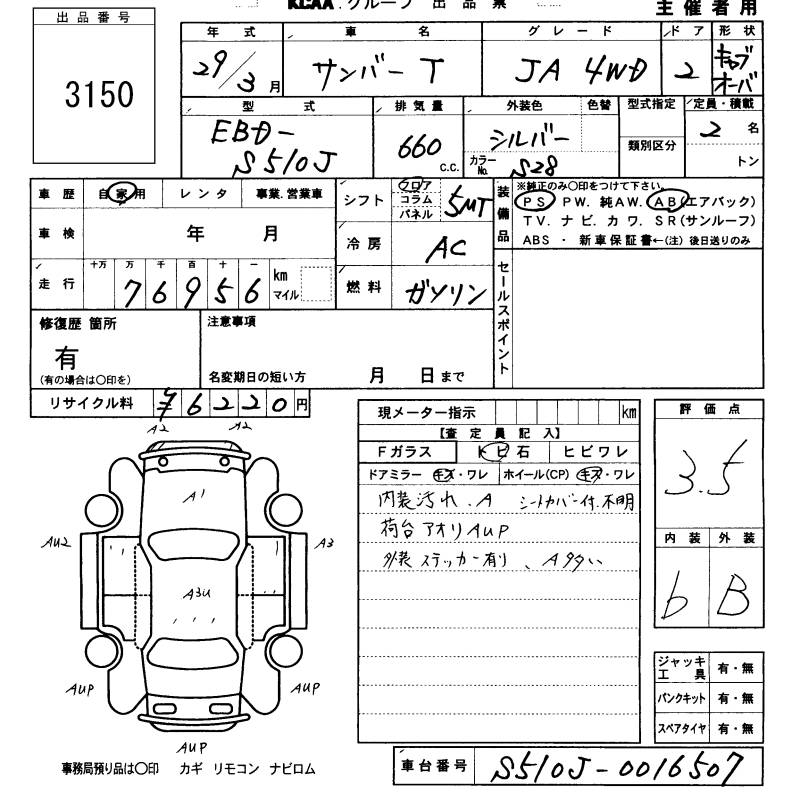 KCAA.グループ 出品票
主催者用
出品番号
3150
年式 車名 グレード ドア 形状
29/3月 サンバーT JA 4WD 2 キャブオーバ
型式 排気量 外装色 色替 型式指定 定員・積載
EBD-S510J 660 c.c. シルバー カラーNo. S28 類別区分 2名 トン
車歴 自家用 レンタ 事業.営業車
車検 年 月
走行 十万 万 千 百 十 一
76956 km マイル
シフト フロア コラム パネル 5MT
冷房 AC
燃料 ガソリン
装備品
※純正のみ○印をつけて下さい。
PS PW. 純AW. AB(エアバック)
TV. ナビ. カワ. SR(サンルーフ)
ABS ・ 新車保証書←(注) 後日送りのみ
セールスポイント
修復歴 箇所
有
(有の場合は○印を)
注意事項
名変期日の短い方 月 日まで
リサイクル料 ¥6220円
現メーター指示 km
【査定員記入】
Fガラス トビ石 ヒビワレ
ドアミラー キズ・ワレ ホイール(CP) キズ・ワレ
内装汚れ.A シートカバー付.不明
荷台アオリAUP
外装ステッカー有り、A多い
評価点
3.5
内装 外装
b B
ジャッキ工具 有・無
パンクキット 有・無
スペアタイヤ 有・無
A2 A2
A1
AU2 A3
A3U
AUP AUP
AUP
事務局預り品は○印 カギ リモコン ナビロム
車台番号 S510J-0016507